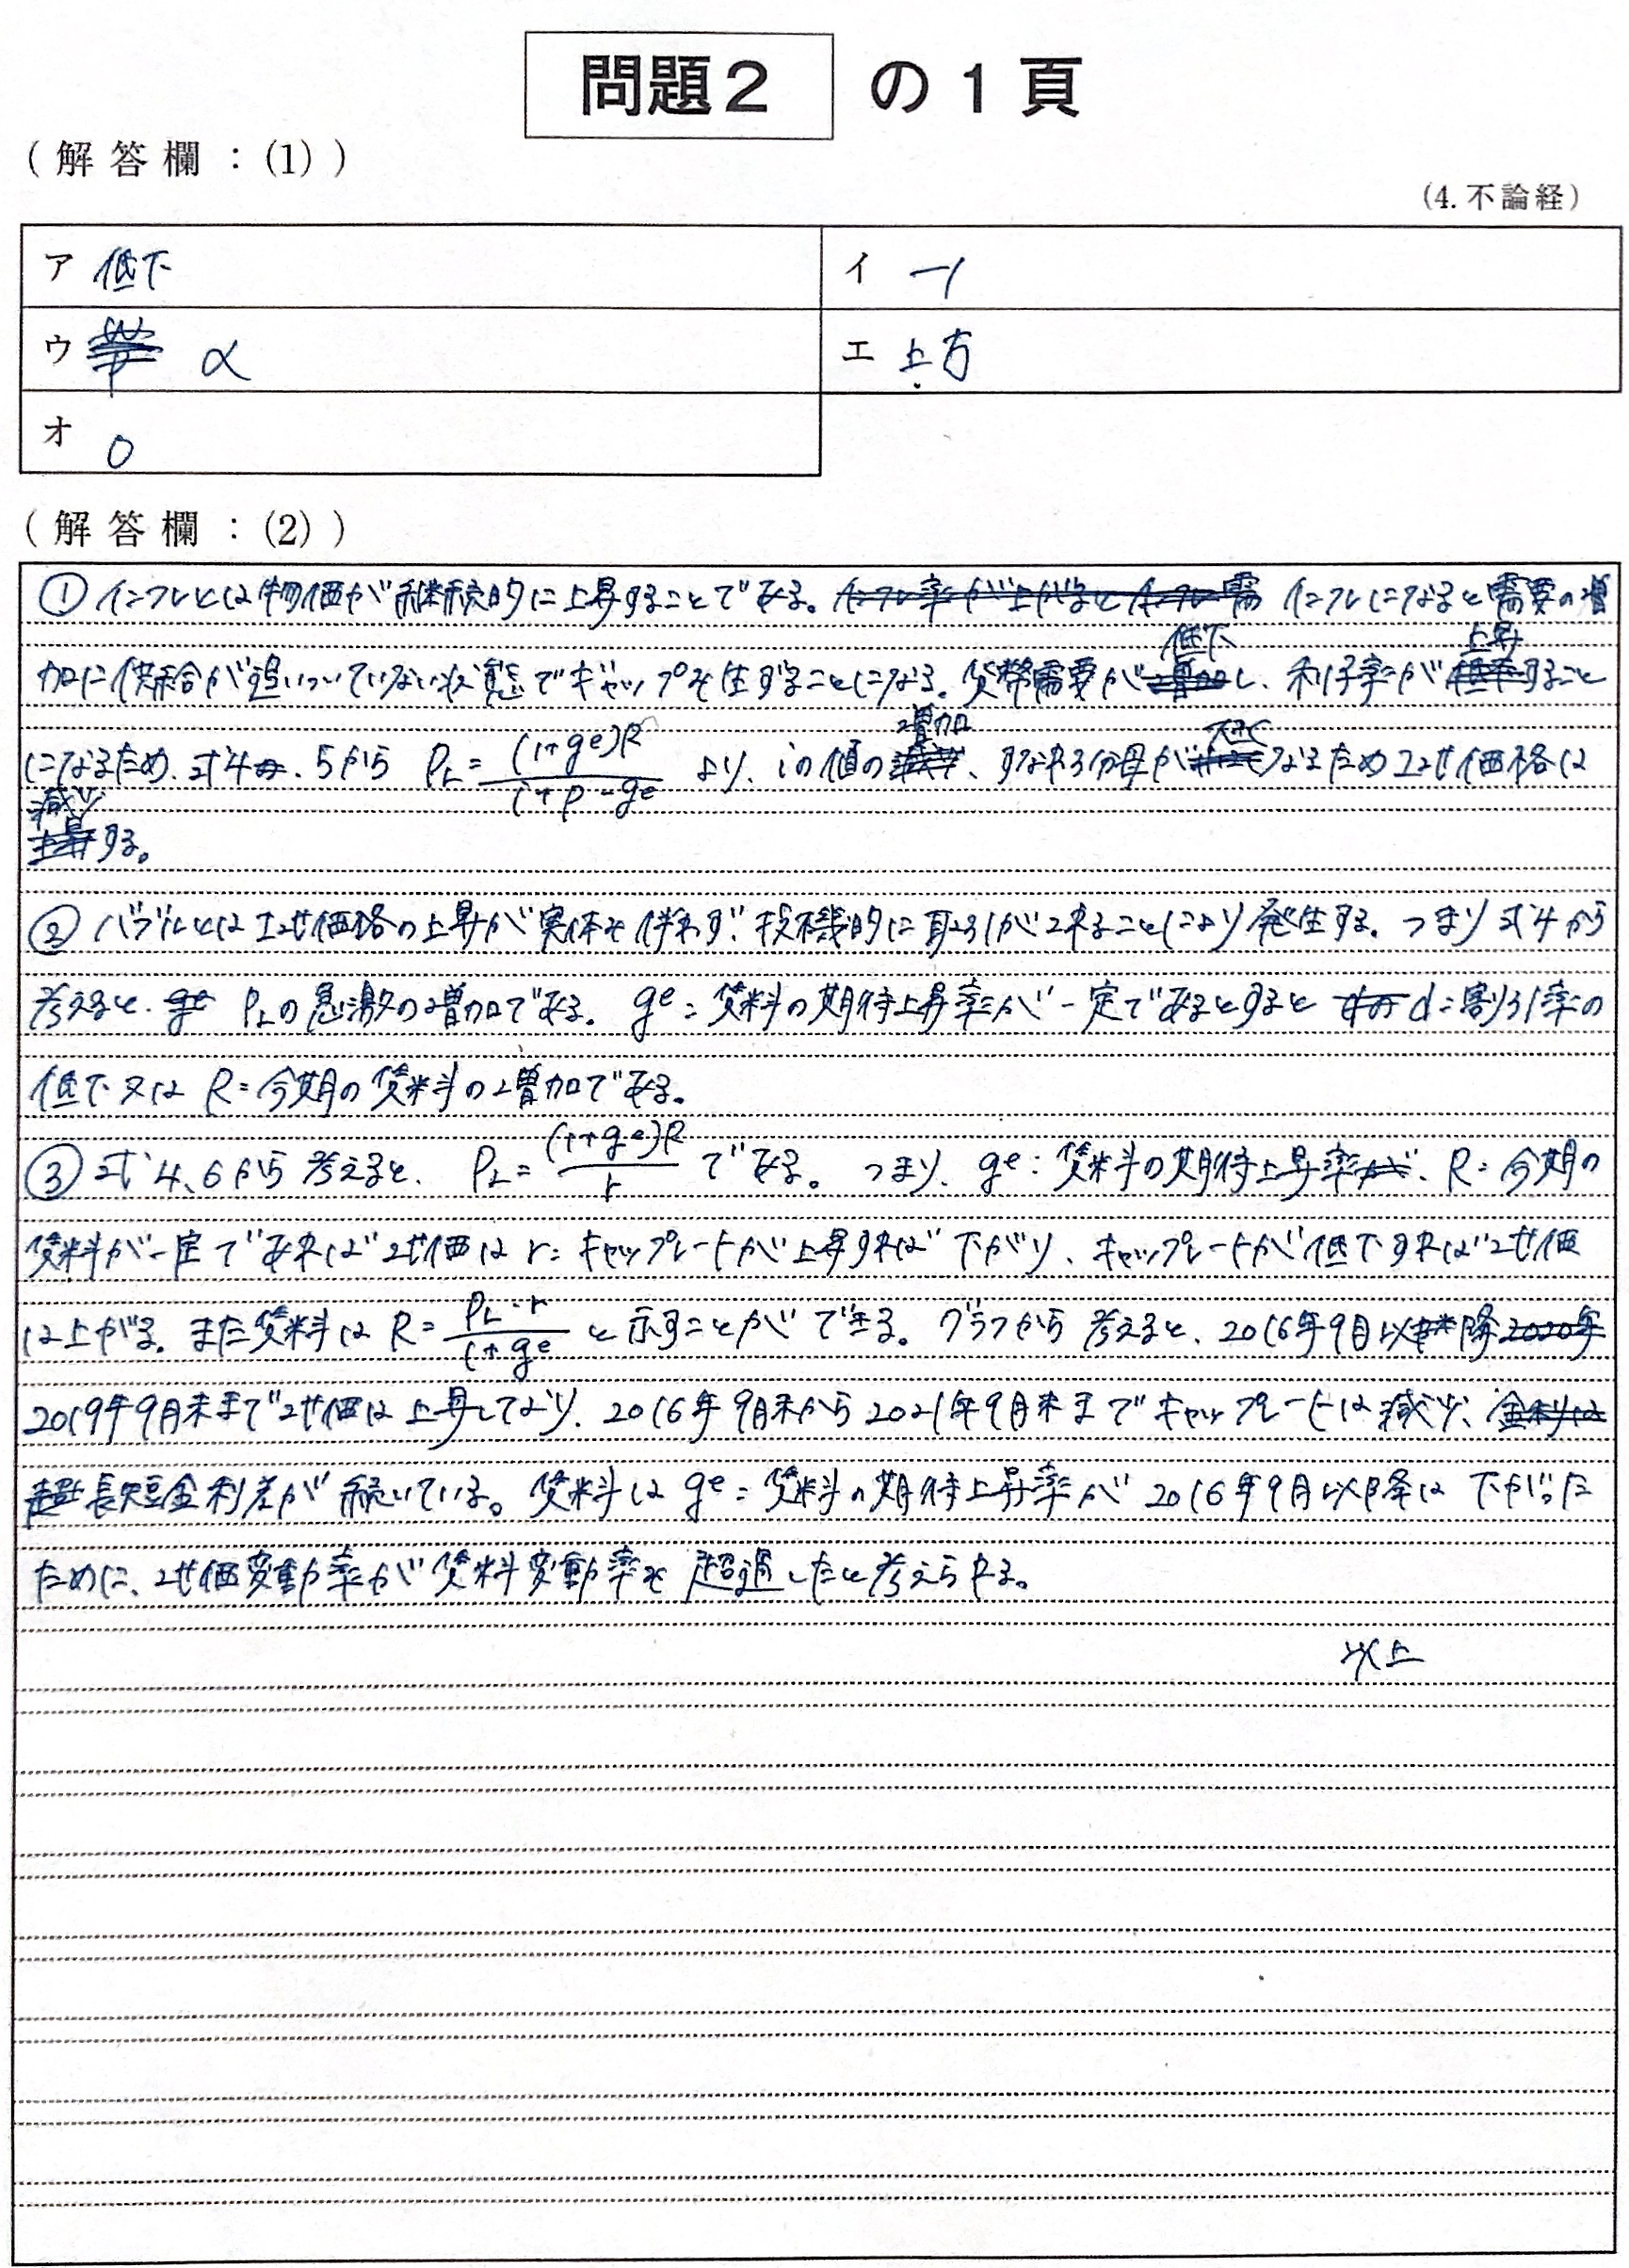 問題2 の1頁
(解答欄:(1))
(4.不論経)
ア 低下
イ -1
ウ α
エ 上方
オ 0
(解答欄:(2))
① インフレとは物価が継続的に上昇することである。インフレ率が上がるとインフレ需 インフレになると需要の増
加に供給が追いついていない状態でギャップを生ずることになる。貨幣需要が低下し、利子率が上昇すること
になるため、式4、5から PL=(1+gᵉ)R/(i+ρ-gᵉ) より、iの値の増加、すなわち分母が大きくなるため土地価格は
減少する。
② バブルとは土地価格の上昇が実体を伴わず、投機的に取引がされることにより発生する。つまり式4から
考えると、gᵉ PLの急激の増加である。gᵉ:賃料の期待上昇率が一定であるとすると d:割引率の
低下又はR:今期の賃料の増加である。
③ 式4、6から考えると、PL=(1+gᵉ)R/r である。つまり、gᵉ:賃料の期待上昇率が、R:今期の
賃料が一定であれば地価はr:キャップレートが上昇すれば下がり、キャップレートが低下すれば地価
は上がる。また賃料はR=PL・r/(1+gᵉ)と示すことができる。グラフから考えると、2016年9月以降2020年
2019年9月末まで地価は上昇しており、2016年9月末から2021年9月末までキャップレートは減少、金利は
超長短金利差が続いている。賃料はgᵉ:賃料の期待上昇率が2016年9月以降は下がった
ために、地価変動率が賃料変動率を超過したと考えられる。
以上